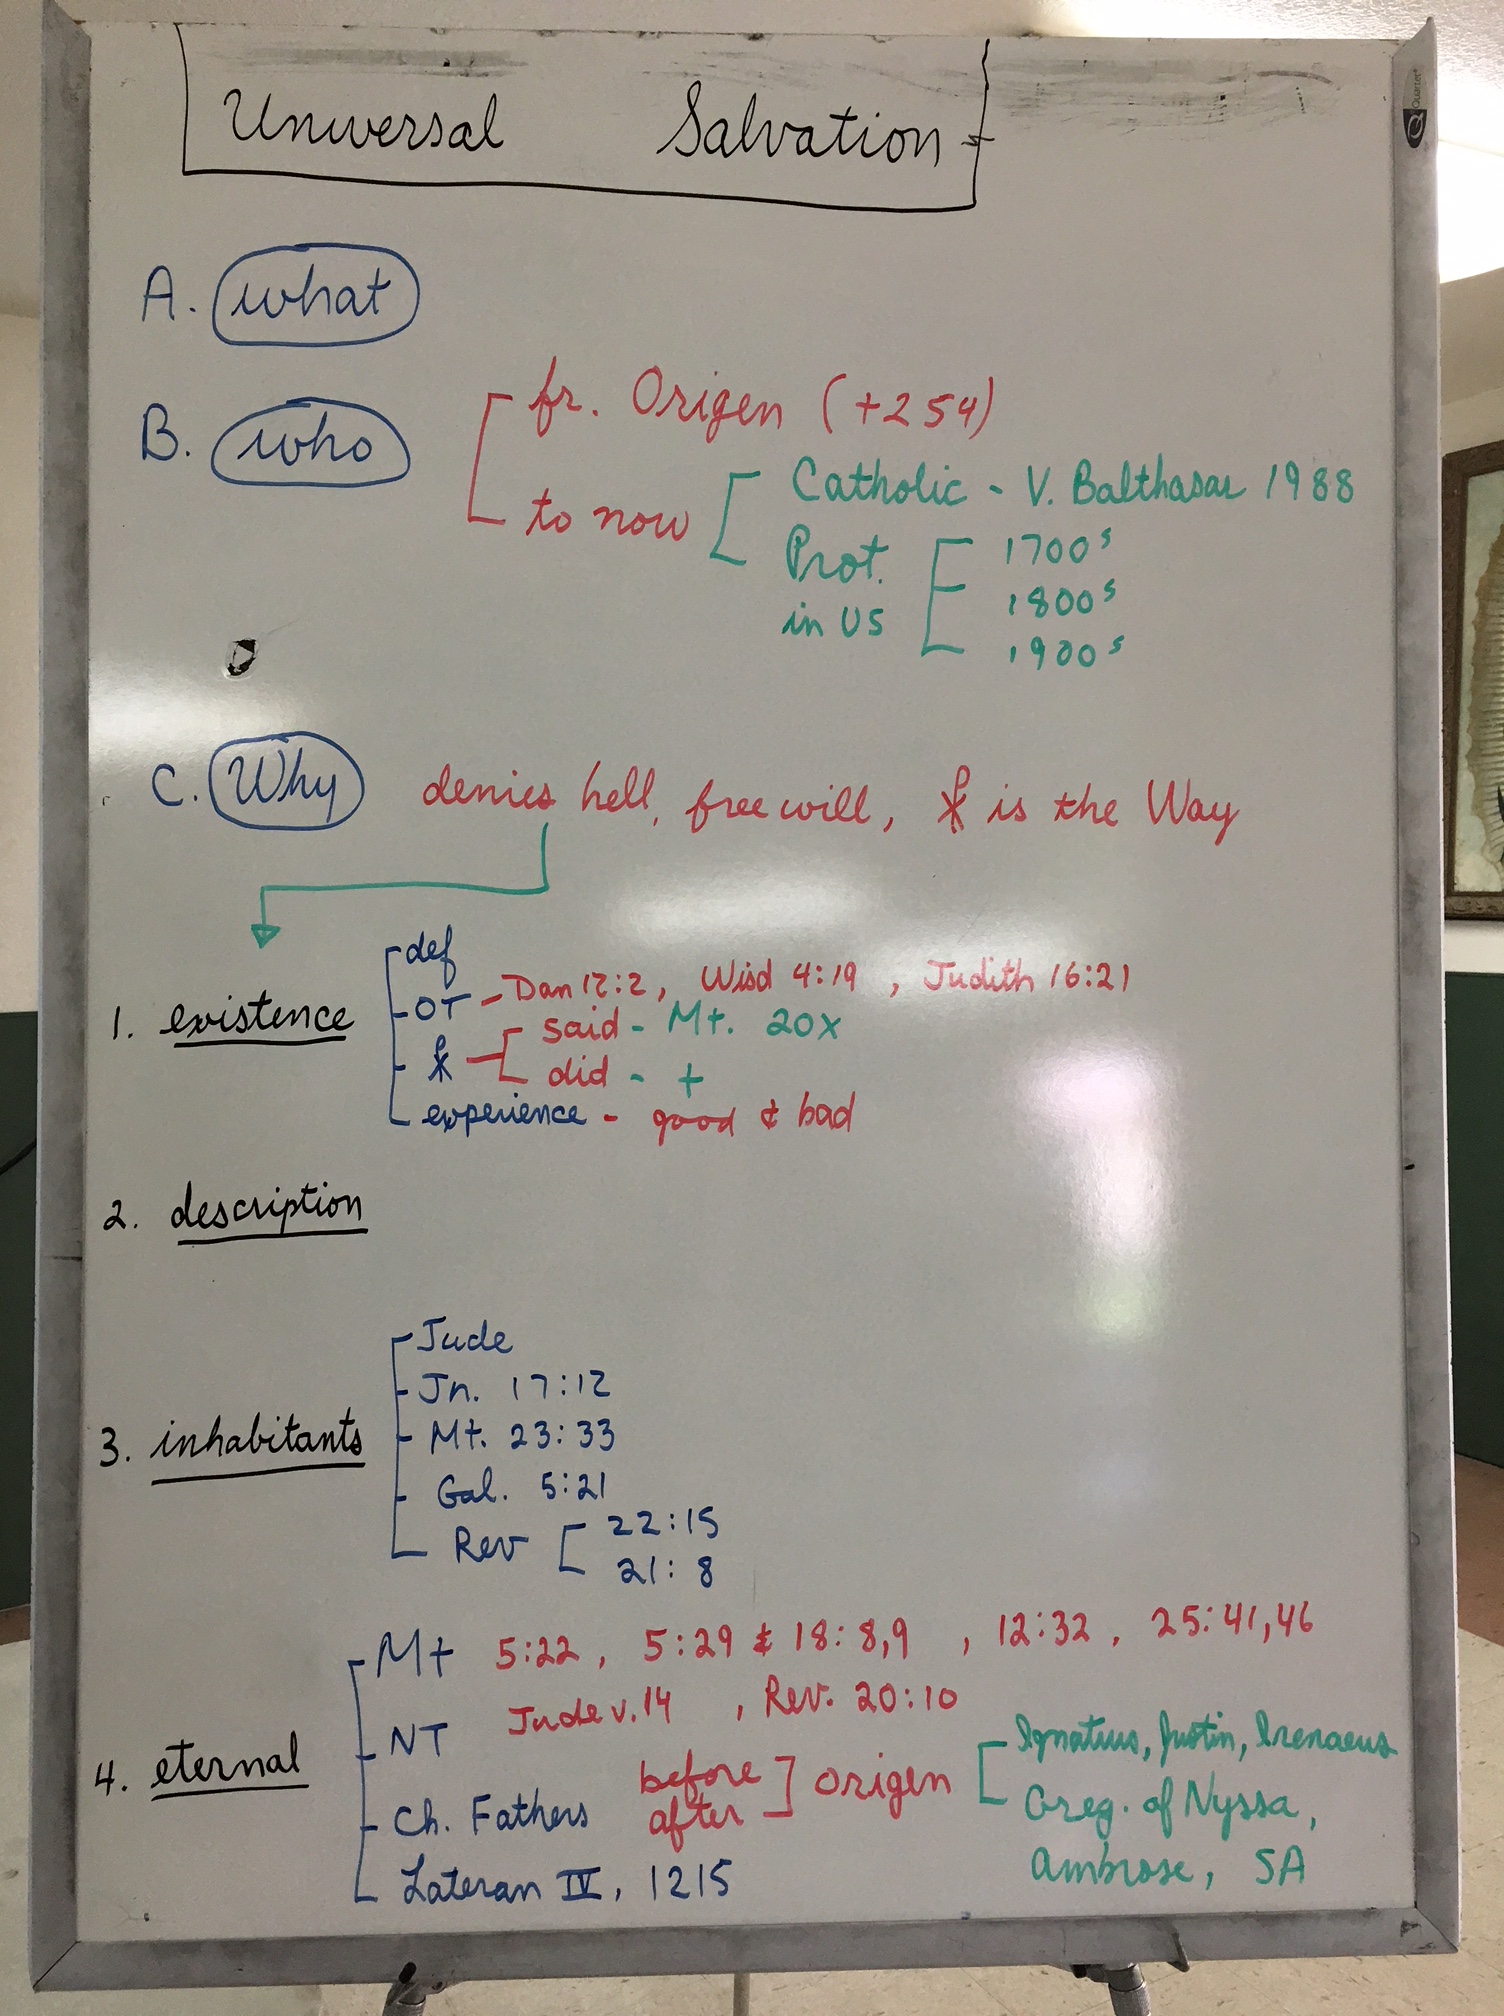 Universal Salvation
Quartet
A. what
B. who
fr. Origen (+254)
to now
Catholic - V. Balthasar 1988
Prot. in US
1700s
1800s
1900s
C. Why denies hell, free will, ☧ is the Way
1. existence
def
OT - Dan 12:2, Wisd 4:19, Judith 16:21
☧
said - Mt. 20x
did - +
experience - good & bad
2. description
3. inhabitants
Jude
Jn. 17:12
Mt. 23:33
Gal. 5:21
Rev
22:15
21:8
4. eternal
Mt 5:22, 5:29 & 18:8,9, 12:32, 25:41,46
NT Jude v.14, Rev. 20:10
Ch. Fathers
before
after
origen
Ignatius, Justin, Irenaeus
Greg. of Nyssa,
Ambrose, SA
Lateran IV, 1215